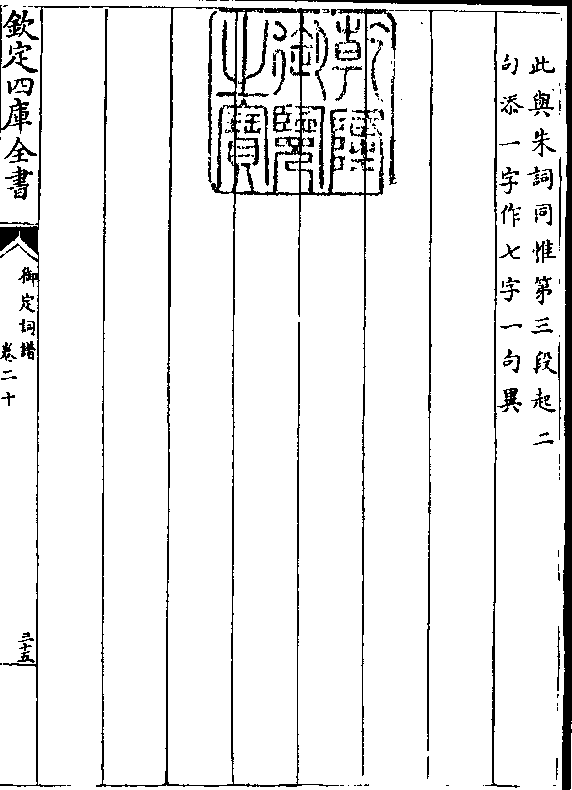 此與朱詞同惟第三段起二
句添一字作七字一句異
乾隆
御覽
之寶
欽定四庫全書
御定詞譜
卷二十
三十五